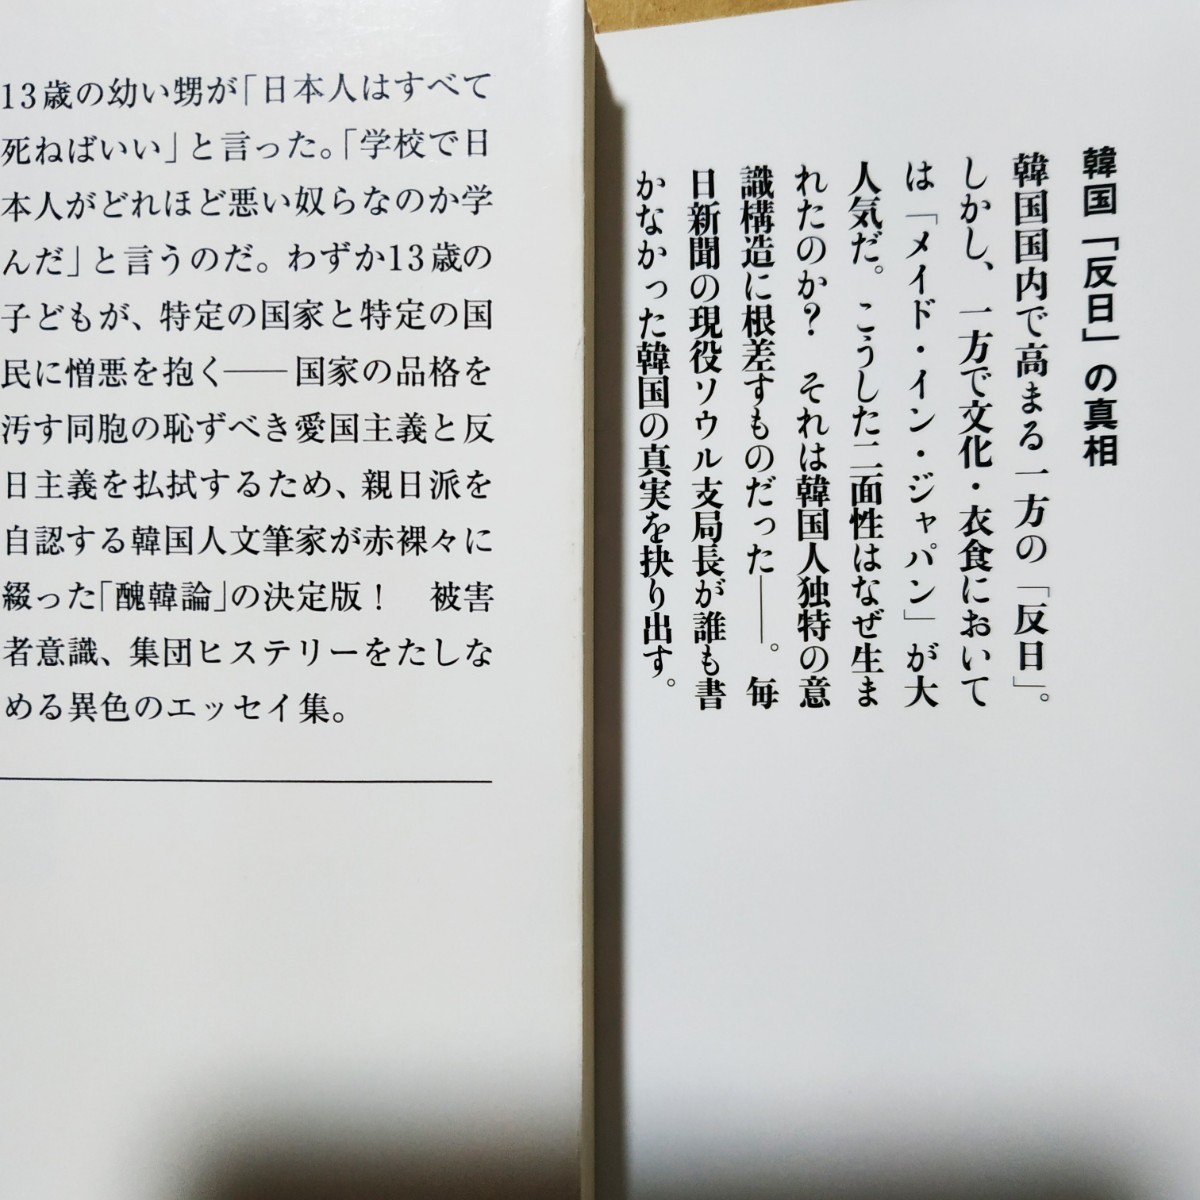 13歳の幼い甥が「日本人はすべて
死ねばいい」と言った。「学校で日
本人がどれほど悪い奴らなのか学
んだ」と言うのだ。わずか13歳の
子どもが、特定の国家と特定の国
民に憎悪を抱く——国家の品格を
汚す同胞の恥ずべき愛国主義と反
日主義を払拭するため、親日派を
自認する韓国人文筆家が赤裸々に
綴った「醜韓論」の決定版！　被害
者意識、集団ヒステリーをたしな
める異色のエッセイ集。
韓国「反日」の真相
韓国国内で高まる一方の「反日」。
しかし、一方で文化・衣食において
は「メイド・イン・ジャパン」が大
人気だ。こうした二面性はなぜ生ま
れたのか？　それは韓国人独特の意
識構造に根差すものだった——。毎
日新聞の現役ソウル支局長が誰も書
かなかった韓国の真実を抉り出す。